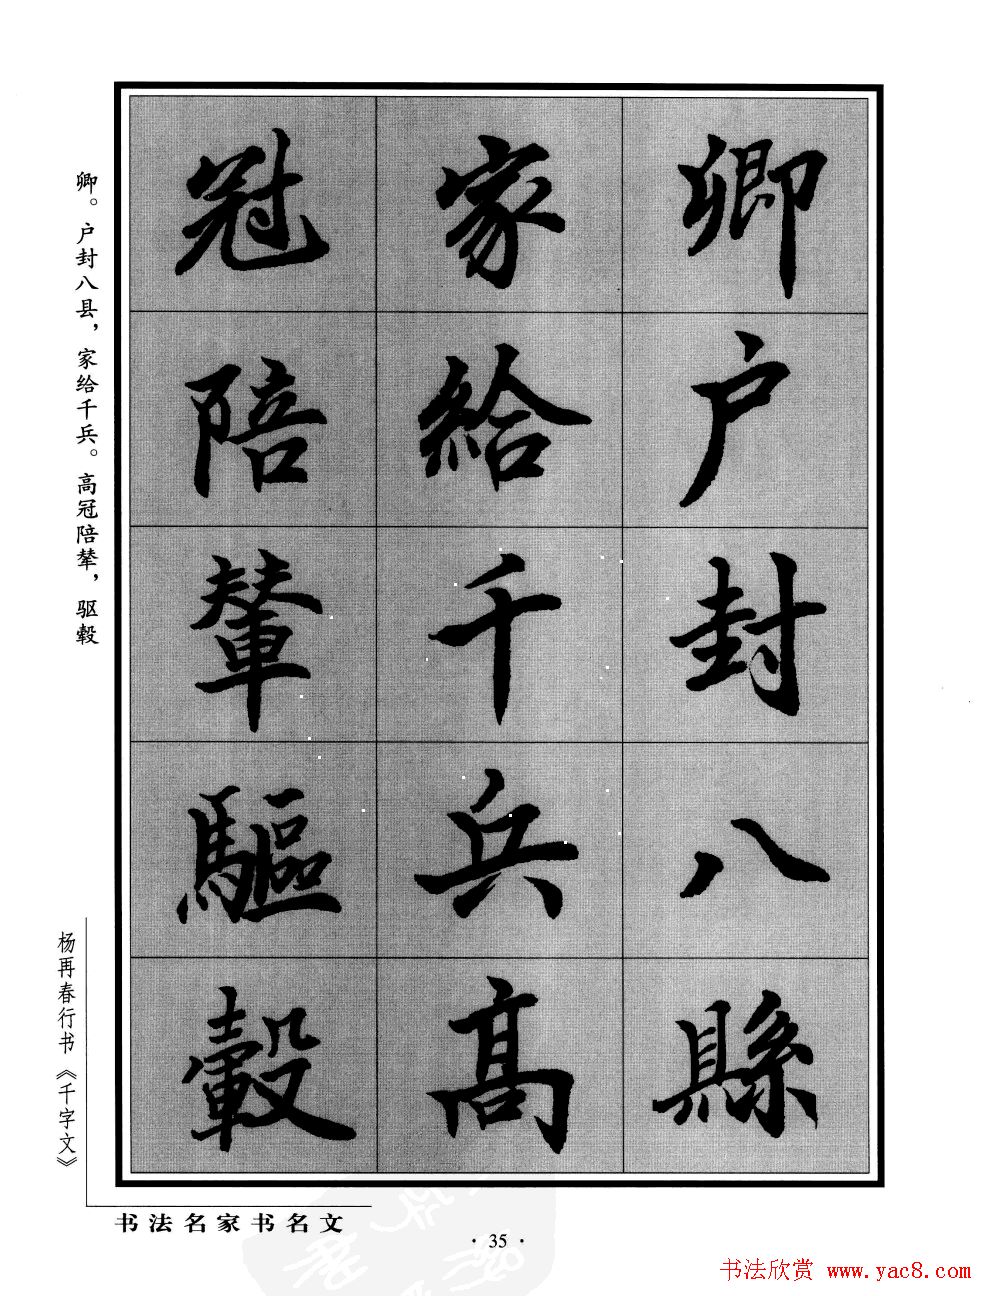 卿户封八縣
家給千兵高
冠陪輦驅轂
卿。户封八县，家给千兵。高冠陪辇，驱毂
杨再春行书《千字文》
书法名家书名文
·35·
书法欣赏 www.yac8.com